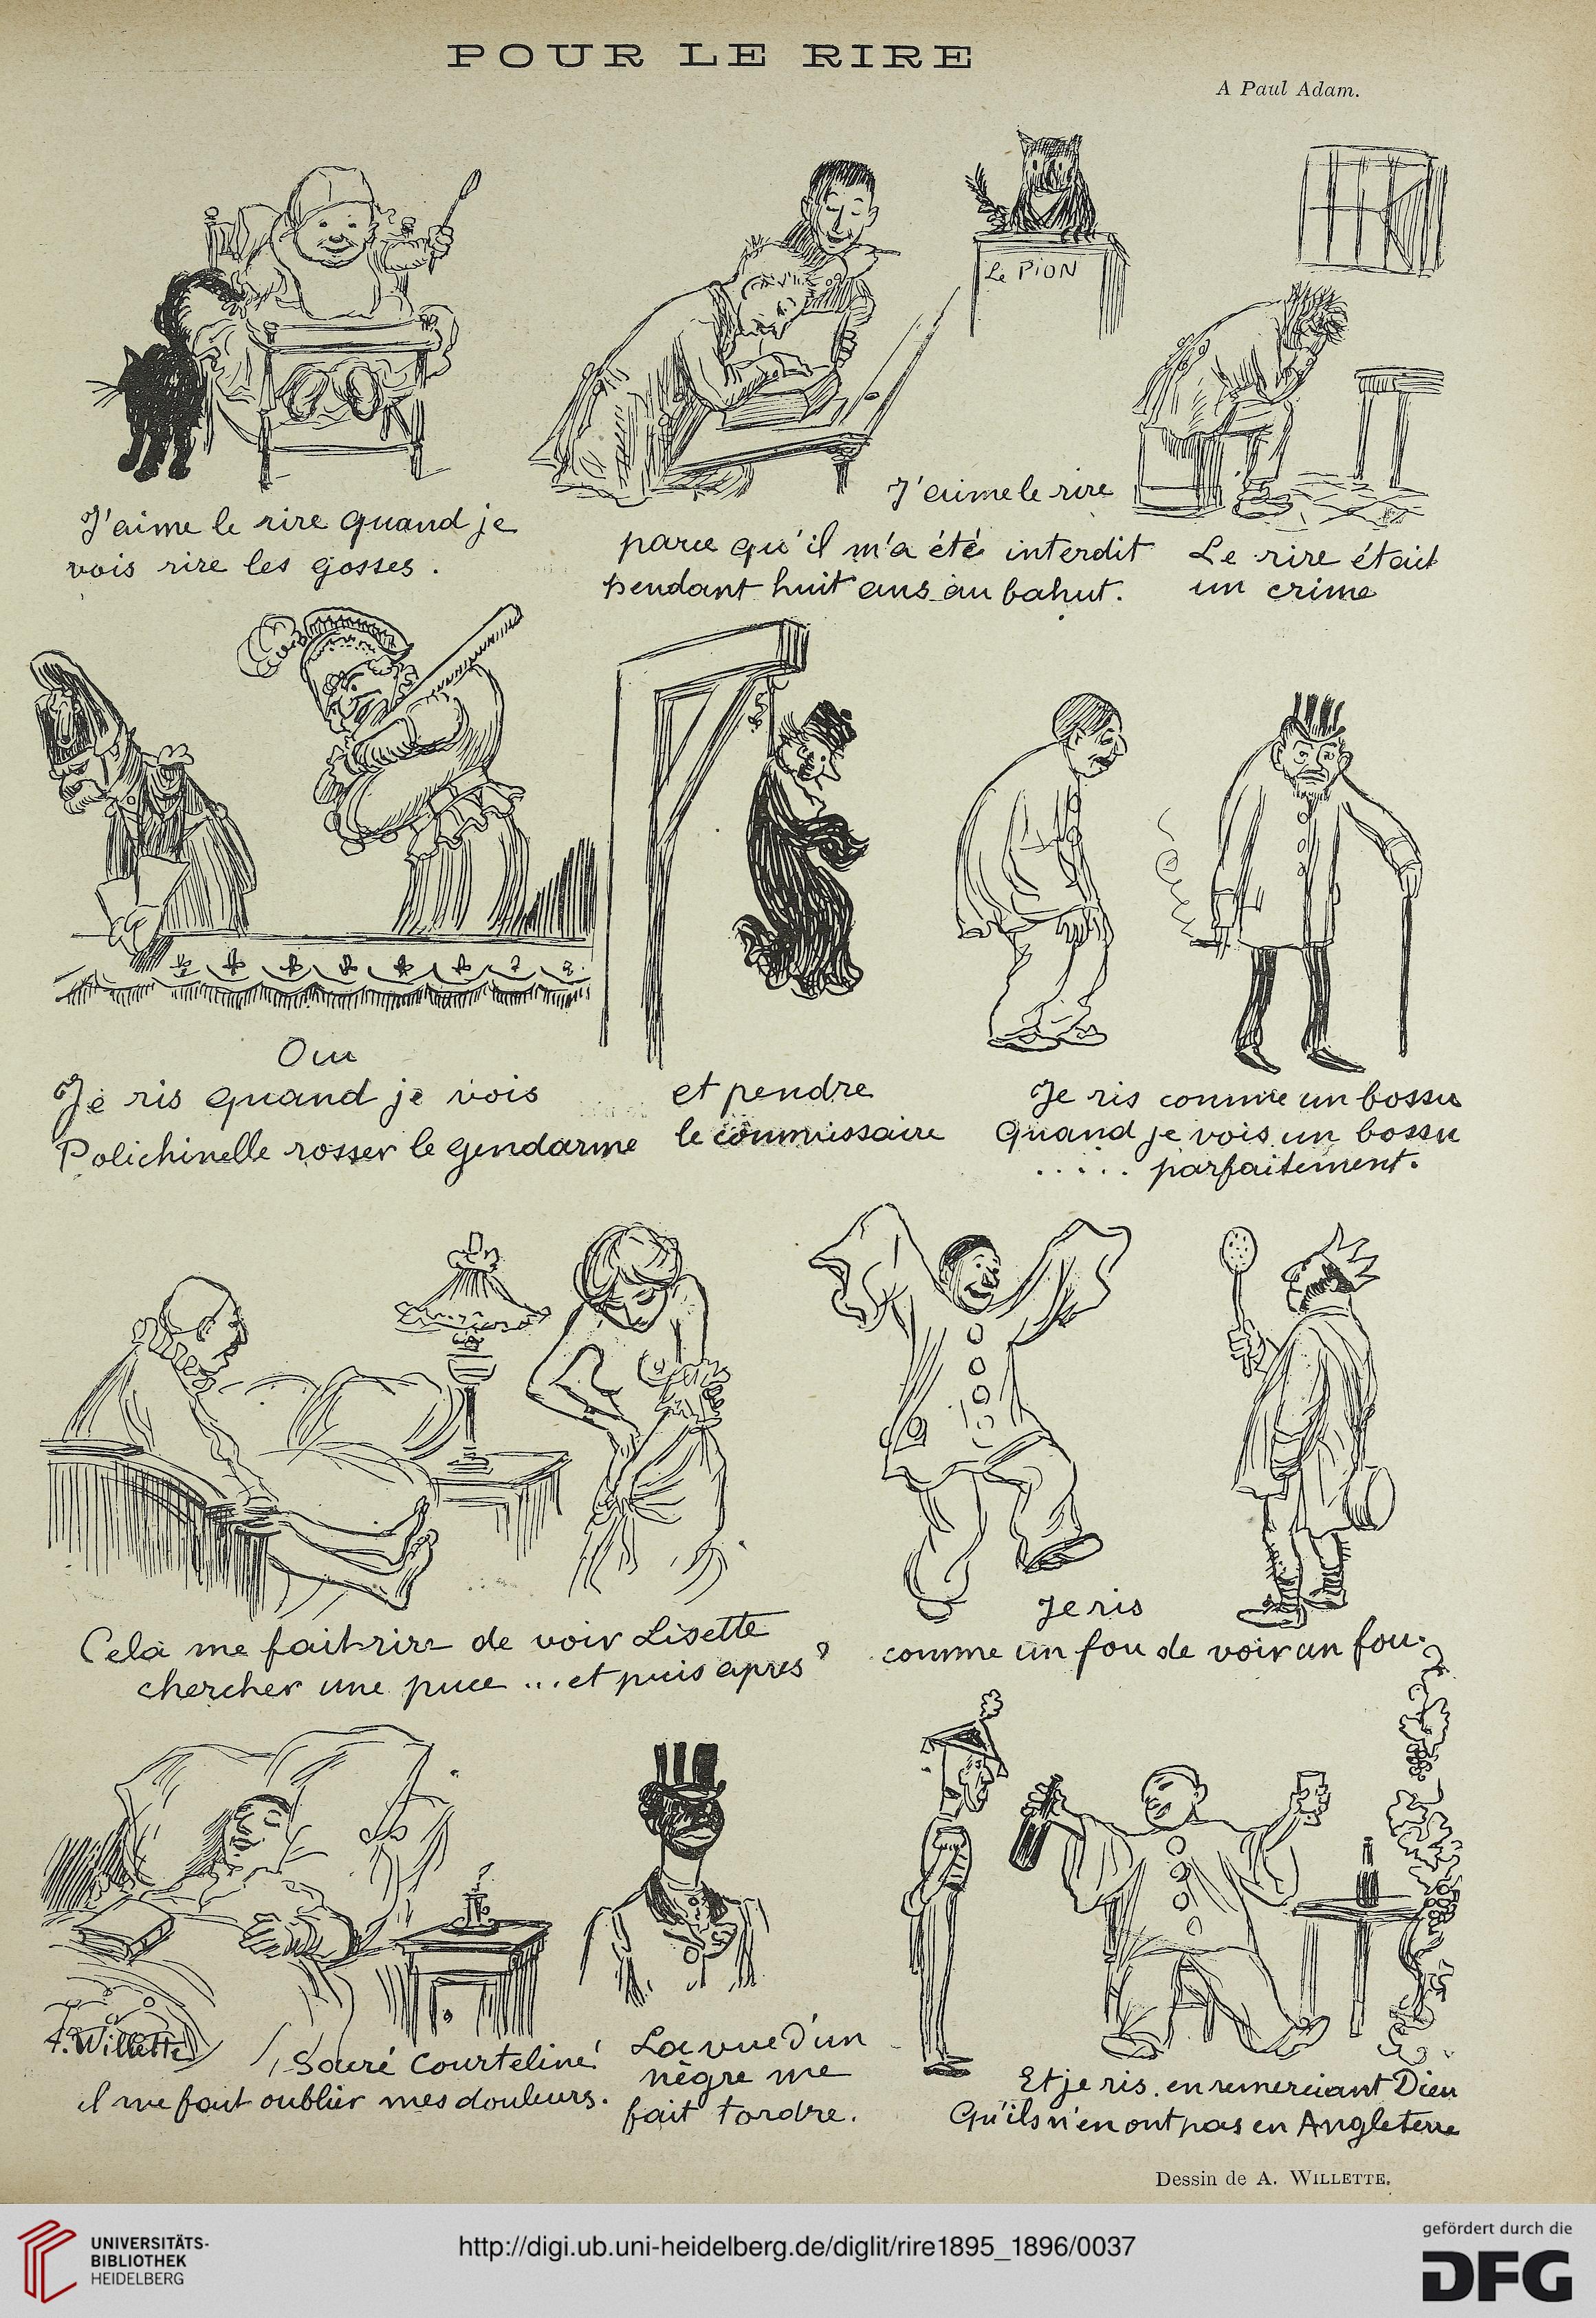 POUR LE RIRE
A Paul Adam.
Le PiON
J'aime le rire quand je
vois rire les gosses.
J'aime le rire
parce qu'il m'a été interdit
pendant huit ans au bahut.
Le rire était
un crime
Oui
Je ris quand je vois
Polichinelle rosser le gendarme
et pendre
le commissaire
Je ris comme un bossu
Quand je vois un bossu
..... parfaitement.
Cela me fait rire de voir Lisette
chercher une puce ... et puis apres?
Je ris
comme un fou de voir un fou.
A. Willette
Sacré Courteline!
il me fait oublier mes douleurs.
La vue d'un
nègre me
fait tordre.
Et je ris. en remerciant Dieu
Qu'ils n'en ont pas en Angleterre
Dessin de A. WILLETTE.
UNIVERSITÄTS-
BIBLIOTHEK
HEIDELBERG
http://digi.ub.uni-heidelberg.de/diglit/rire1895_1896/0037
gefördert durch die
DFG